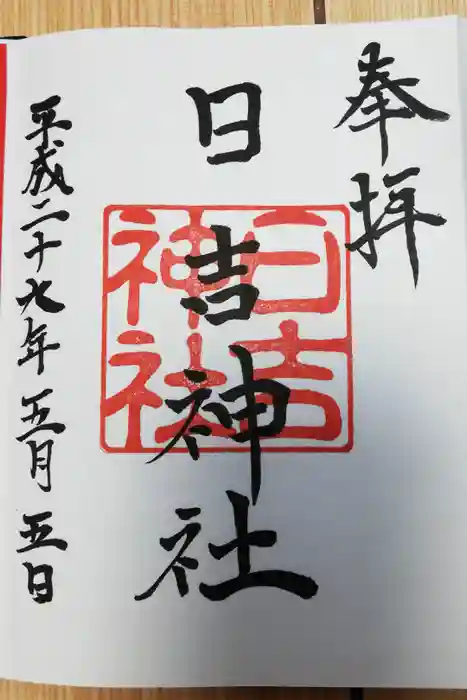 奉拝
日吉神社
日吉
神社
平成二十九年五月五日